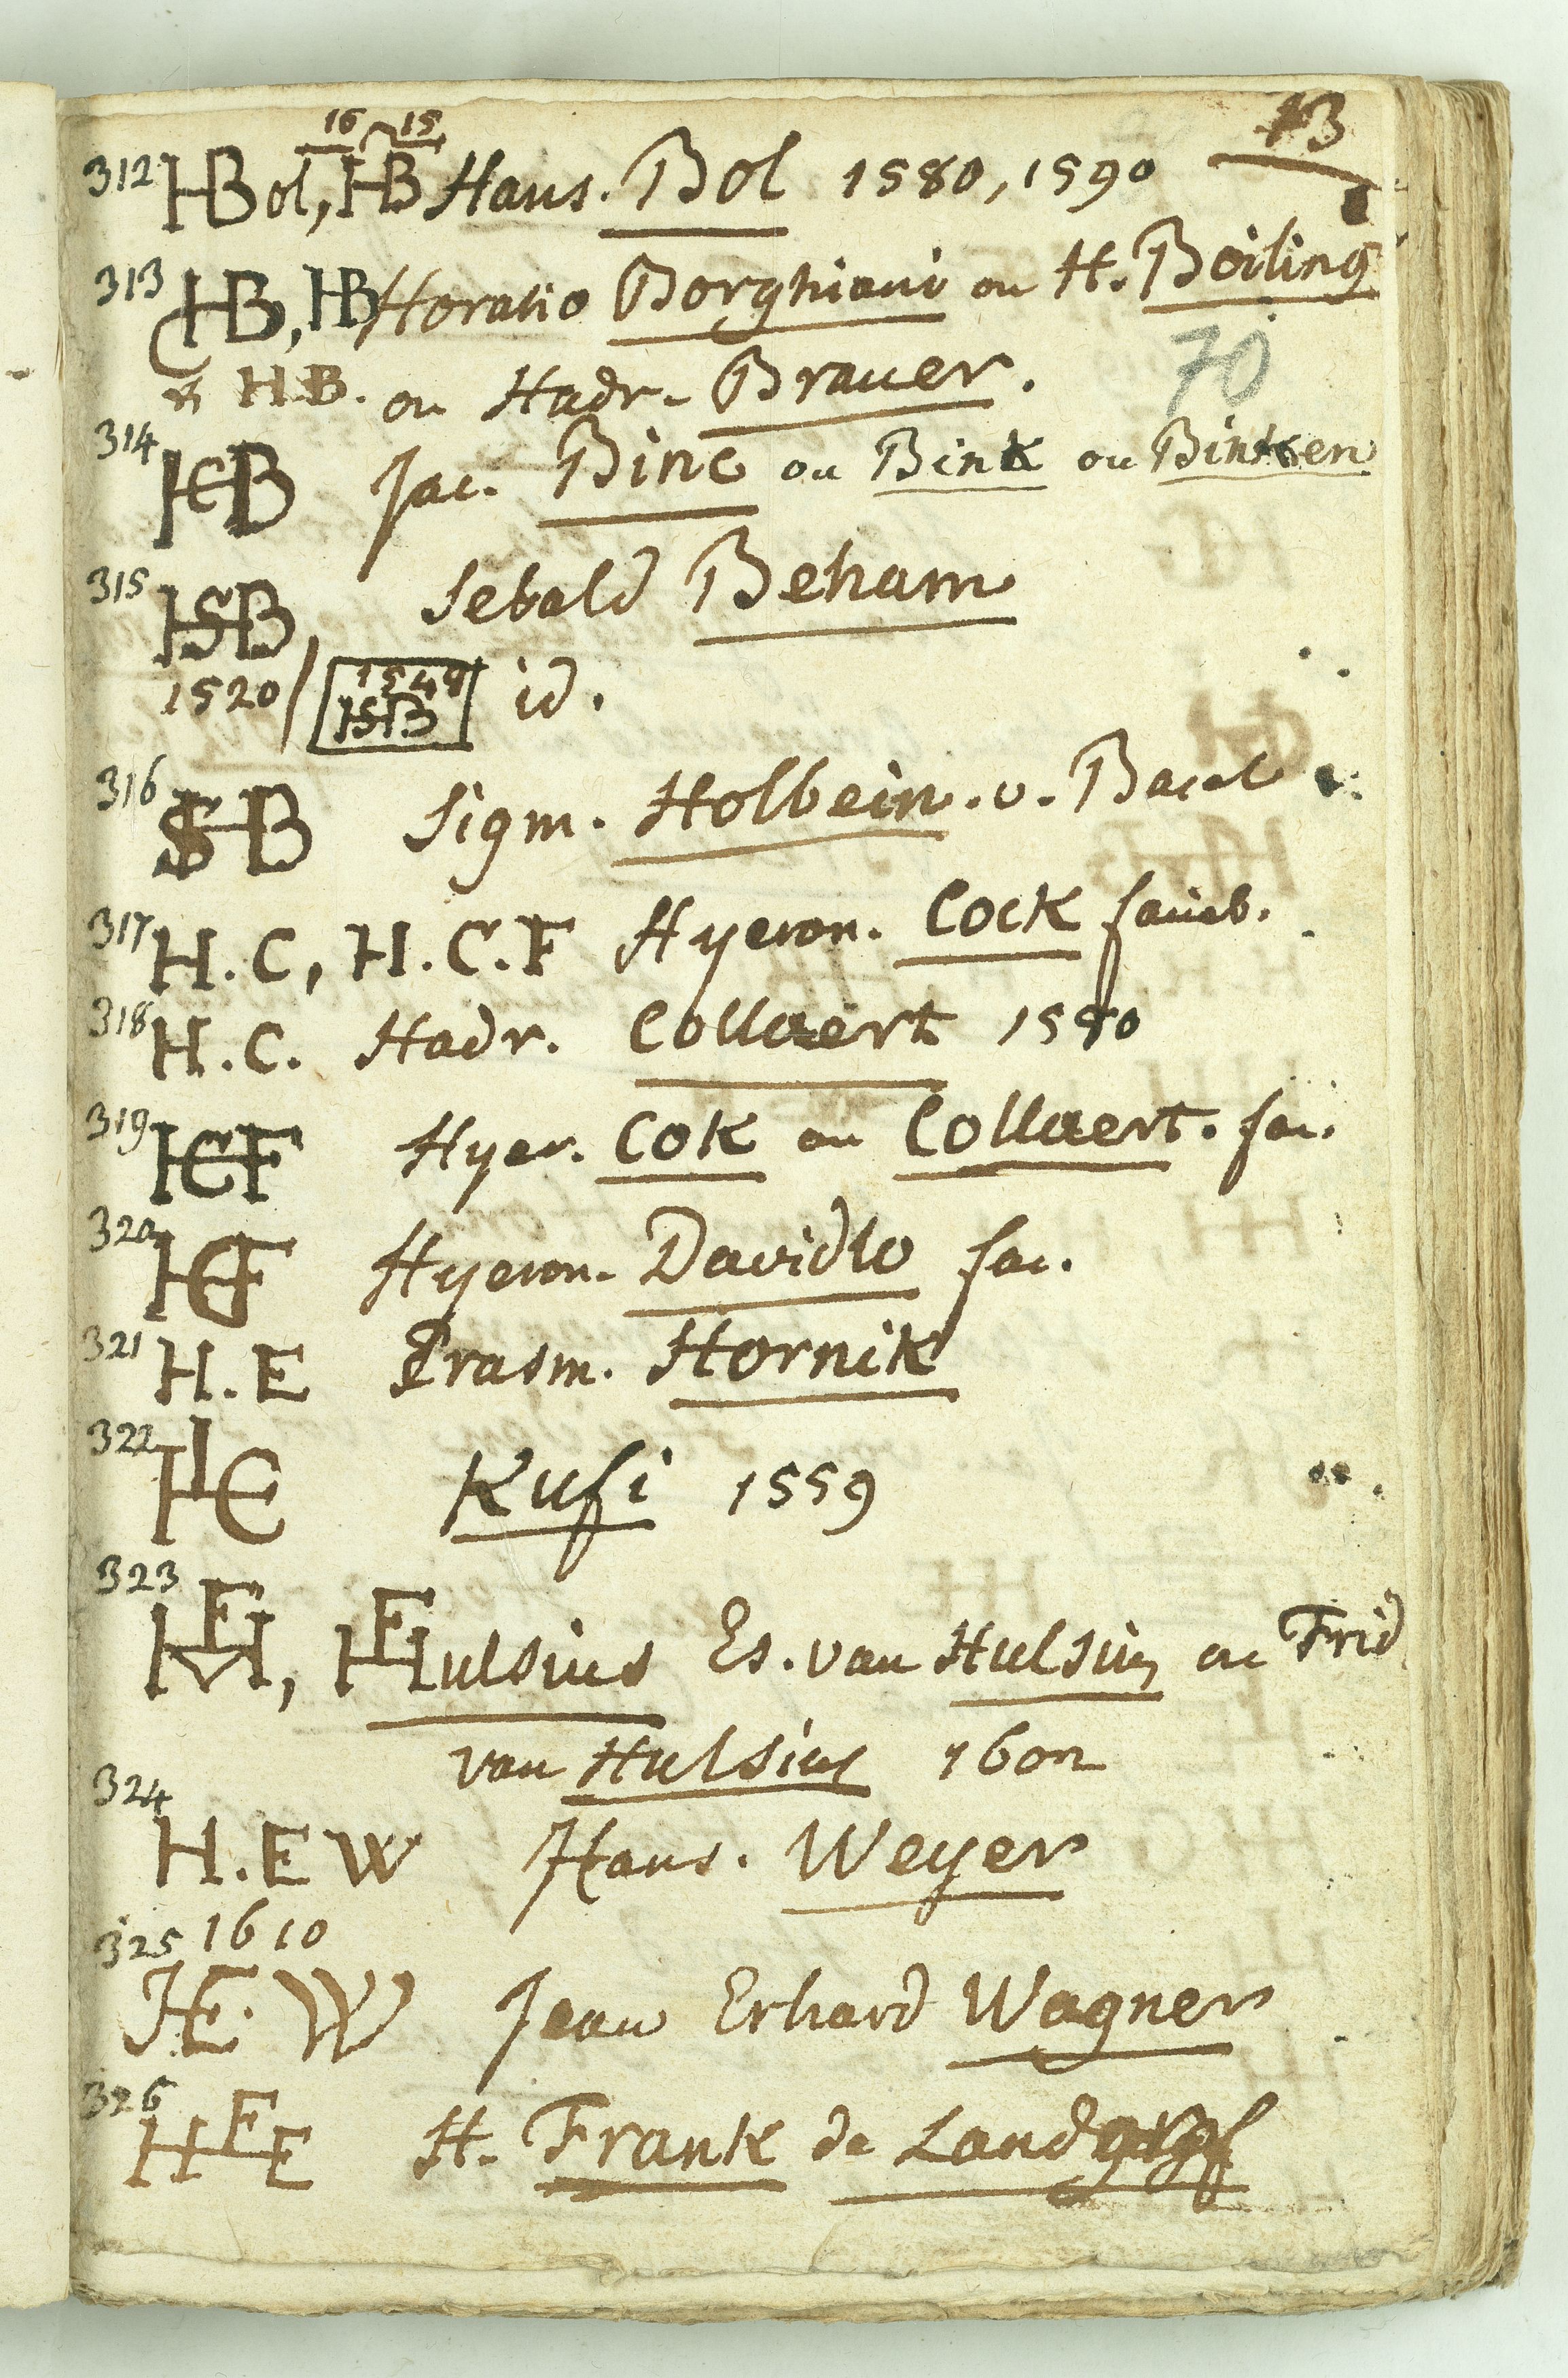 16 15 43
312 HBol, HB Hans. Bol 1580, 1590
313 HB, HB Horatio Borghiani ou H. Boiling
70
& H.B. ou Hadr. Brauer.
314 HCB Jac. Binc ou Bink ou Binken
315 HSB, Sebald Beham
1520 / 1549 HSB id.
316 SHB Sigm. Holbein. v. Basel
317 H.C, H.C.F Hyeron. Cock
318 H.C. Hadr. Collaert 1580
319 HCF Hyer. Cok ou Collaert. fec.
320 HDF Hyeron. Davidlo fec.
321 H.E Erasm. Hornik
322 Kufi 1559
323 Hulsius Es. van Hulsius ou Frid
van Hulsius 1602
324
H.EW Hans. Weyer
325 1610
HE. W Jean Erhard Wagner
326
HFE H. Frank de